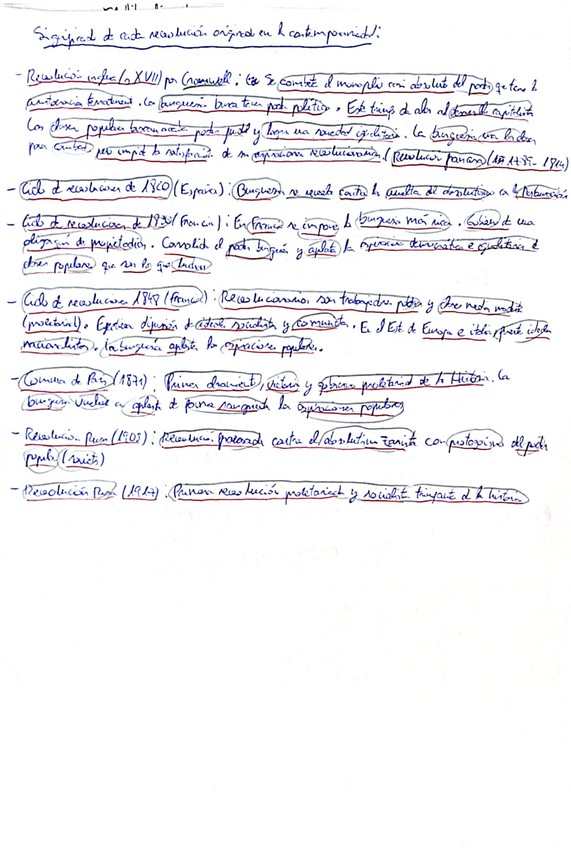 Significado de cada revolución original en la contemporaneidad:
- Revolución inglesa (s XVII) por Cromwell: Se combate el monopolio casi absoluto del poder que tenía la
aristocracia terrateniente. La burguesía busca tener poder político. Este triunfo da alas al desarrollo capitalista
Las clases populares buscan poder y lograr una sociedad igualitaria. La burguesía usa la
para combatir pero impide la satisfacción de sus aspiraciones revolucionarias / Revolución francesa (1789-
- Ciclo de revoluciones de 1820 (España): Burguesía se revela contra la vuelta del absolutismo en la Restauración
- Ciclo de revoluciones de 1830 (Francia): En Francia se impone la burguesía más rica. Gobierno de una
oligarquía de propietarios. Consolida el poder burgués y aplasta la democrática e igualitaria de
clases populares que son las que luchan
- Ciclo de revoluciones 1848 (Francia): Revolucionarios son trabajadores, pobres y clase media
(proletariado). difusión de ideales socialistas y comunistas. En el Este de Europa e Italia,
nacionalistas. La burguesía aplasta las aspiraciones populares.
- Comuna de París (1871): Primer victoria y gobierno proletariado de la Historia. La
burguesía vuelve a aplastar de forma sangrienta las aspiraciones populares
- Revolución Rusa (1905): Revolución fracasada contra el absolutismo zarista con protagonismo del poder
popular (soviets)
- Revolución Rusa (1917): Primera revolución proletariada y socialista triunfante de la historia